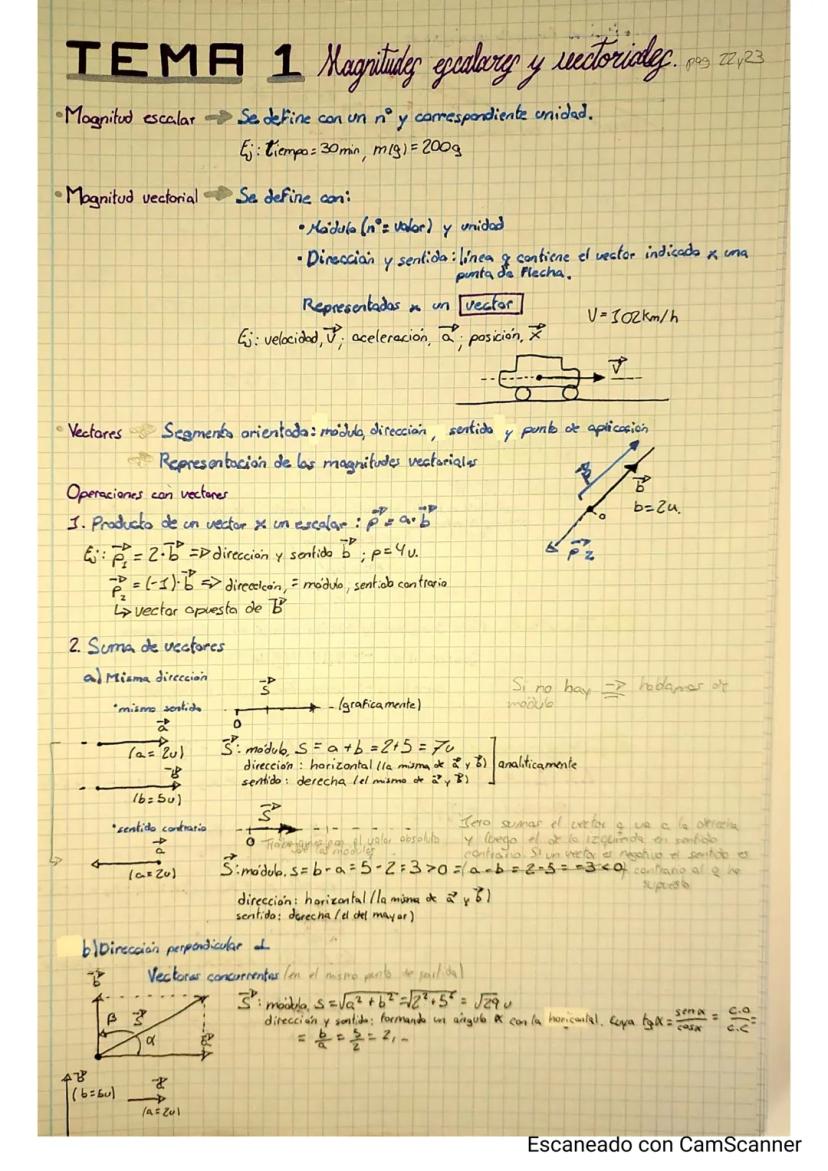 TEMA 1 Magnitudes escalares y vectoriales. pág 22 y 23
• Magnitud escalar ⇒ Se define con un nº y correspondiente unidad.
Ej: tiempo = 30 min, m(g) = 200g
• Magnitud vectorial ⇒ Se define con:
• Módulo (nº = valor) y unidad
• Dirección y sentido: línea q contiene el vector indicado x una
punta de flecha.
Representadas x un vector
V = 102 km/h
Ej: velocidad, v⃗; aceleración, a⃗; posición, x⃗
v⃗
• Vectores ⇒ Segmento orientado: módulo, dirección, sentido y punto de aplicación
⇒ Representación de las magnitudes vectoriales
Operaciones con vectores
b⃗
b = 2u.
o
p⃗₂
1. Producto de un vector x un escalar: p⃗ = a · b⃗
Ej: p⃗₁ = 2 · b⃗ => dirección y sentido b⃗; p = 4u.
p⃗₂ = (-1) · b⃗ => dirección, = módulo, sentido contrario
↳ vector opuesto de b⃗
2. Suma de vectores
a) Misma dirección
Si no hay => hablamos de
módulo
• mismo sentido
s⃗
0
- (graficamente)
a⃗
(a = 2u)
b⃗
(b = 5u)
S⃗: módulo, S = a + b = 2 + 5 = 7u
dirección: horizontal (la misma de a⃗ y b⃗)
sentido: derecha (el mismo de a⃗ y b⃗)
analíticamente
• sentido contrario
s⃗
0
a⃗
(a = 2u)
1ero sumas el vector q va a la derecha
y luego el de la izquierda en sentido
contrario. Si un vector es negativo el sentido es
contrario al q he
supuesto
el valor absoluto
S⃗: módulo, s = b - a = 5 - 2 = 3 > 0 = (a - b = 2 - 5 = -3 < 0)
dirección: horizontal (la misma de a⃗ y b⃗)
sentido: derecha (el del mayor)
b) Dirección perpendicular ⊥
Vectores concurrentes (en el mismo punto de partida)
b⃗
β s⃗
α
a⃗
S⃗: módulo, s = √a² + b² = √2² + 5² = √29 u
dirección y sentido: formando un ángulo α con la horizontal. Cuya tgα = senα/cosα = C.O/C.C =
= b/a = 5/2 = 2,..
b⃗
(b = 5u)
a⃗
(a = 2u)
Escaneado con CamScanner